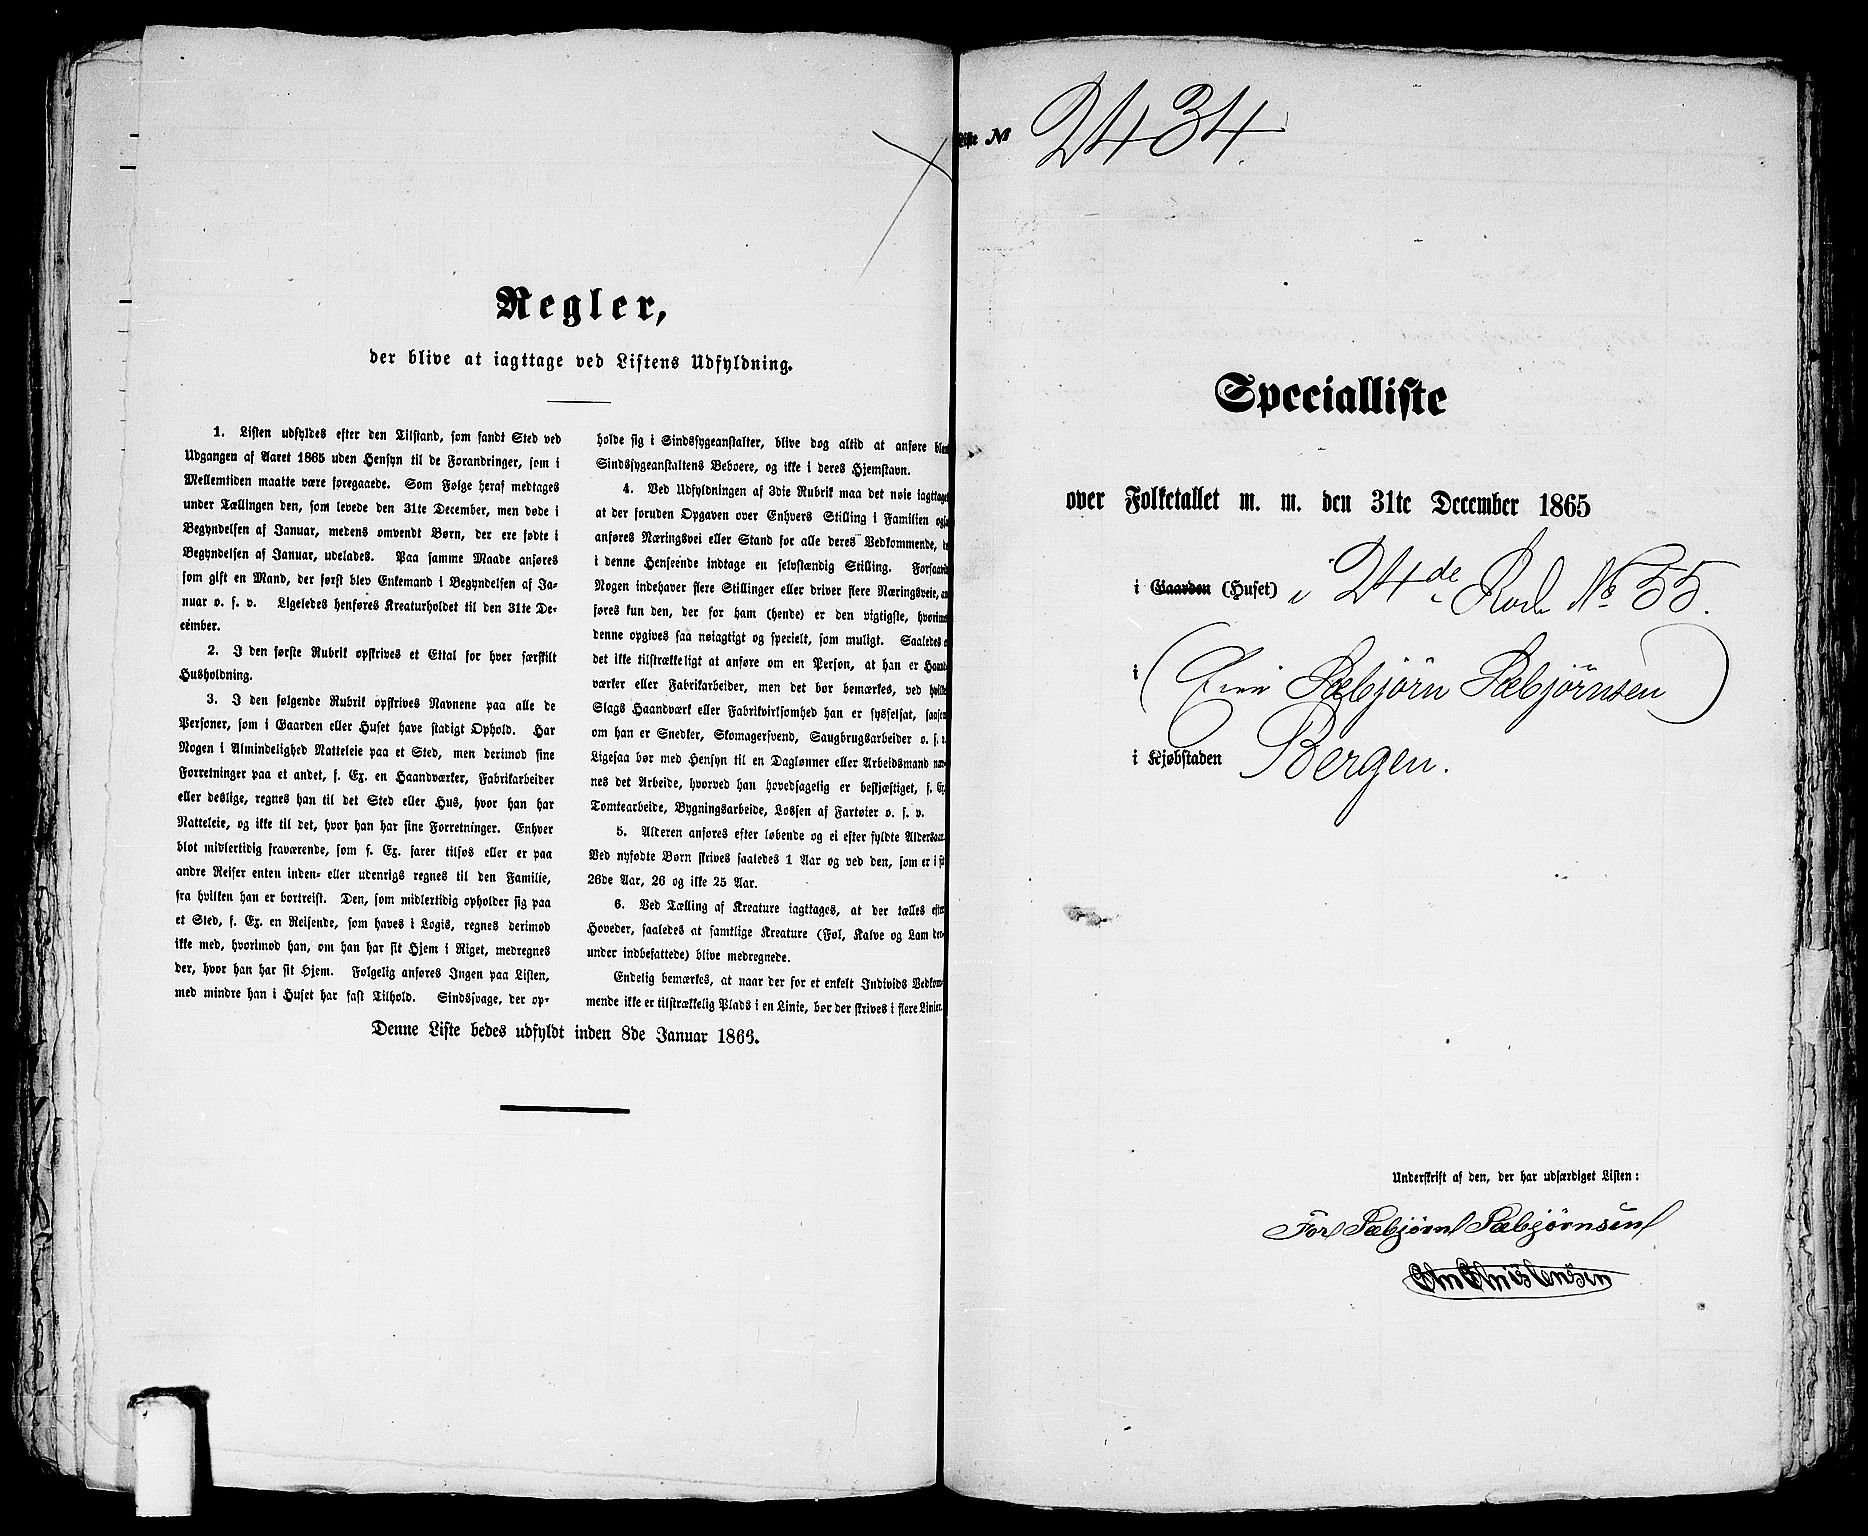 Regler,
der blive at iagttage ved Listens Udfyldning.
1. Listen udfyldes efter den Tilstand, som fandt Sted ved
Udgangen af Aaret 1865 uden Hensyn til de Forandringer, som i
Mellemtiden maatte være foregaaede. Som Følge heraf medtages
under Tællingen den, som levede den 31te December, men døde i
Begyndelsen af Januar, medens omvendt Børn, der ere fødte i
Begyndelsen af Januar, udelades. Paa samme Maade anføres
som gift en Mand, der først blev Enkemand i Begyndelsen af Ja-
nuar o. s. v. Ligeledes henføres Kreaturholdet til den 31te De-
cember.
2. I den første Rubrik opskrives et Ettal for hver særskilt
Husholdning.
3. I den følgende Rubrik opskrives Navnene paa alle de
Personer, som i Gaarden eller Huset have stadigt Ophold. Har
Nogen i Almindelighed Natteleie paa et Sted, men derimod sine
Forretninger paa et andet, f. Ex. en Haandværker, Fabrikarbeider
eller deslige, regnes han til det Sted eller Hus, hvor han har
Natteleie, og ikke til det, hvor han har sine Forretninger. Enhver
blot midlertidig fraværende, som f. Ex. farer tilsøs eller er paa
andre Reiser enten inden- eller udenrigs regnes til den Familie,
fra hvilken han er bortreist. Den, som midlertidig opholder sig paa
et Sted, f. Ex. en Reisende, som haves i Logis, regnes derimod
ikke med, hvorimod han, om han har sit Hjem i Riget, medregnes
der, hvor han har sit Hjem. Følgelig anføres Ingen paa Listen,
med mindre han i Huset har fast Tilhold. Sindssvage, der op-
holde sig i Sindssygeanstalter, blive dog altid at anføre blan
Sindssygeanstaltens Beboere, og ikke i deres Hjemstavn.
4. Ved Udfyldningen af 3die Rubrik maa det nøie iagttages
at der foruden Opgaven over Enhvers Stilling i Familien og
anføres Næringsvei eller Stand for alle deres Vedkommende,
i denne Henseende indtage en selvstændig Stilling. Forsaavidt
Nogen indehaver flere Stillinger eller driver flere Næringsveie, an
føres kun den, der for ham (hende) er den vigtigste, hvorimod
denne opgives saa nøiagtigt og specielt, som muligt. Saaledes
det ikke tilstrækkeligt at anføre om en Person, at han er Haand
værker eller Fabrikarbeider, men det bør bemærkes, ved hvilke
Slags Haandværk eller Fabrikvirksomhed han er sysselsat, saasom
om han er Snedker, Skomagersvend, Saugbrugsarbeider o. s. v.
Ligesaa bør med Hensyn til en Daglønner eller Arbeidsmand næv
nes det Arbeide, hvorved han hovedsagelig er beskjæftiget, f. Ex.
Tomtearbeide, Bygningsarbeide, Lossen af Fartøier o. s. v.
5. Alderen anføres efter løbende og ei efter fyldte Aldersaar.
Ved nyfødte Børn skrives saaledes 1 Aar og ved den, som er i sit
26de Aar, 26 og ikke 25 Aar.
6. Ved Tælling af Kreature iagttages, at der tælles efter
Hoveder, saaledes at samtlige Kreature (Føl, Kalve og Lam der-
under indbefattede) blive medregnede.
Endelig bemærkes, at naar der for et enkelt Individs Vedkom-
mende ikke er tilstrækkelig Plads i en Linie, bør der skrives i flere Linier.
Denne Liste bedes udfyldt inden 8de Januar 1866.
Liste No 2434.
Specialliste
over Folketallet m. m. den 31te December 1865
i Gaarden (Huset) i 24de Rode No 35.
i (Eier Sæbjørn Sæbjørnsen)
i Kjøbstaden Bergen.
Underskrift af den, der har udfærdiget Listen:
For Sæbjørn Sæbjørnsen
Christensen